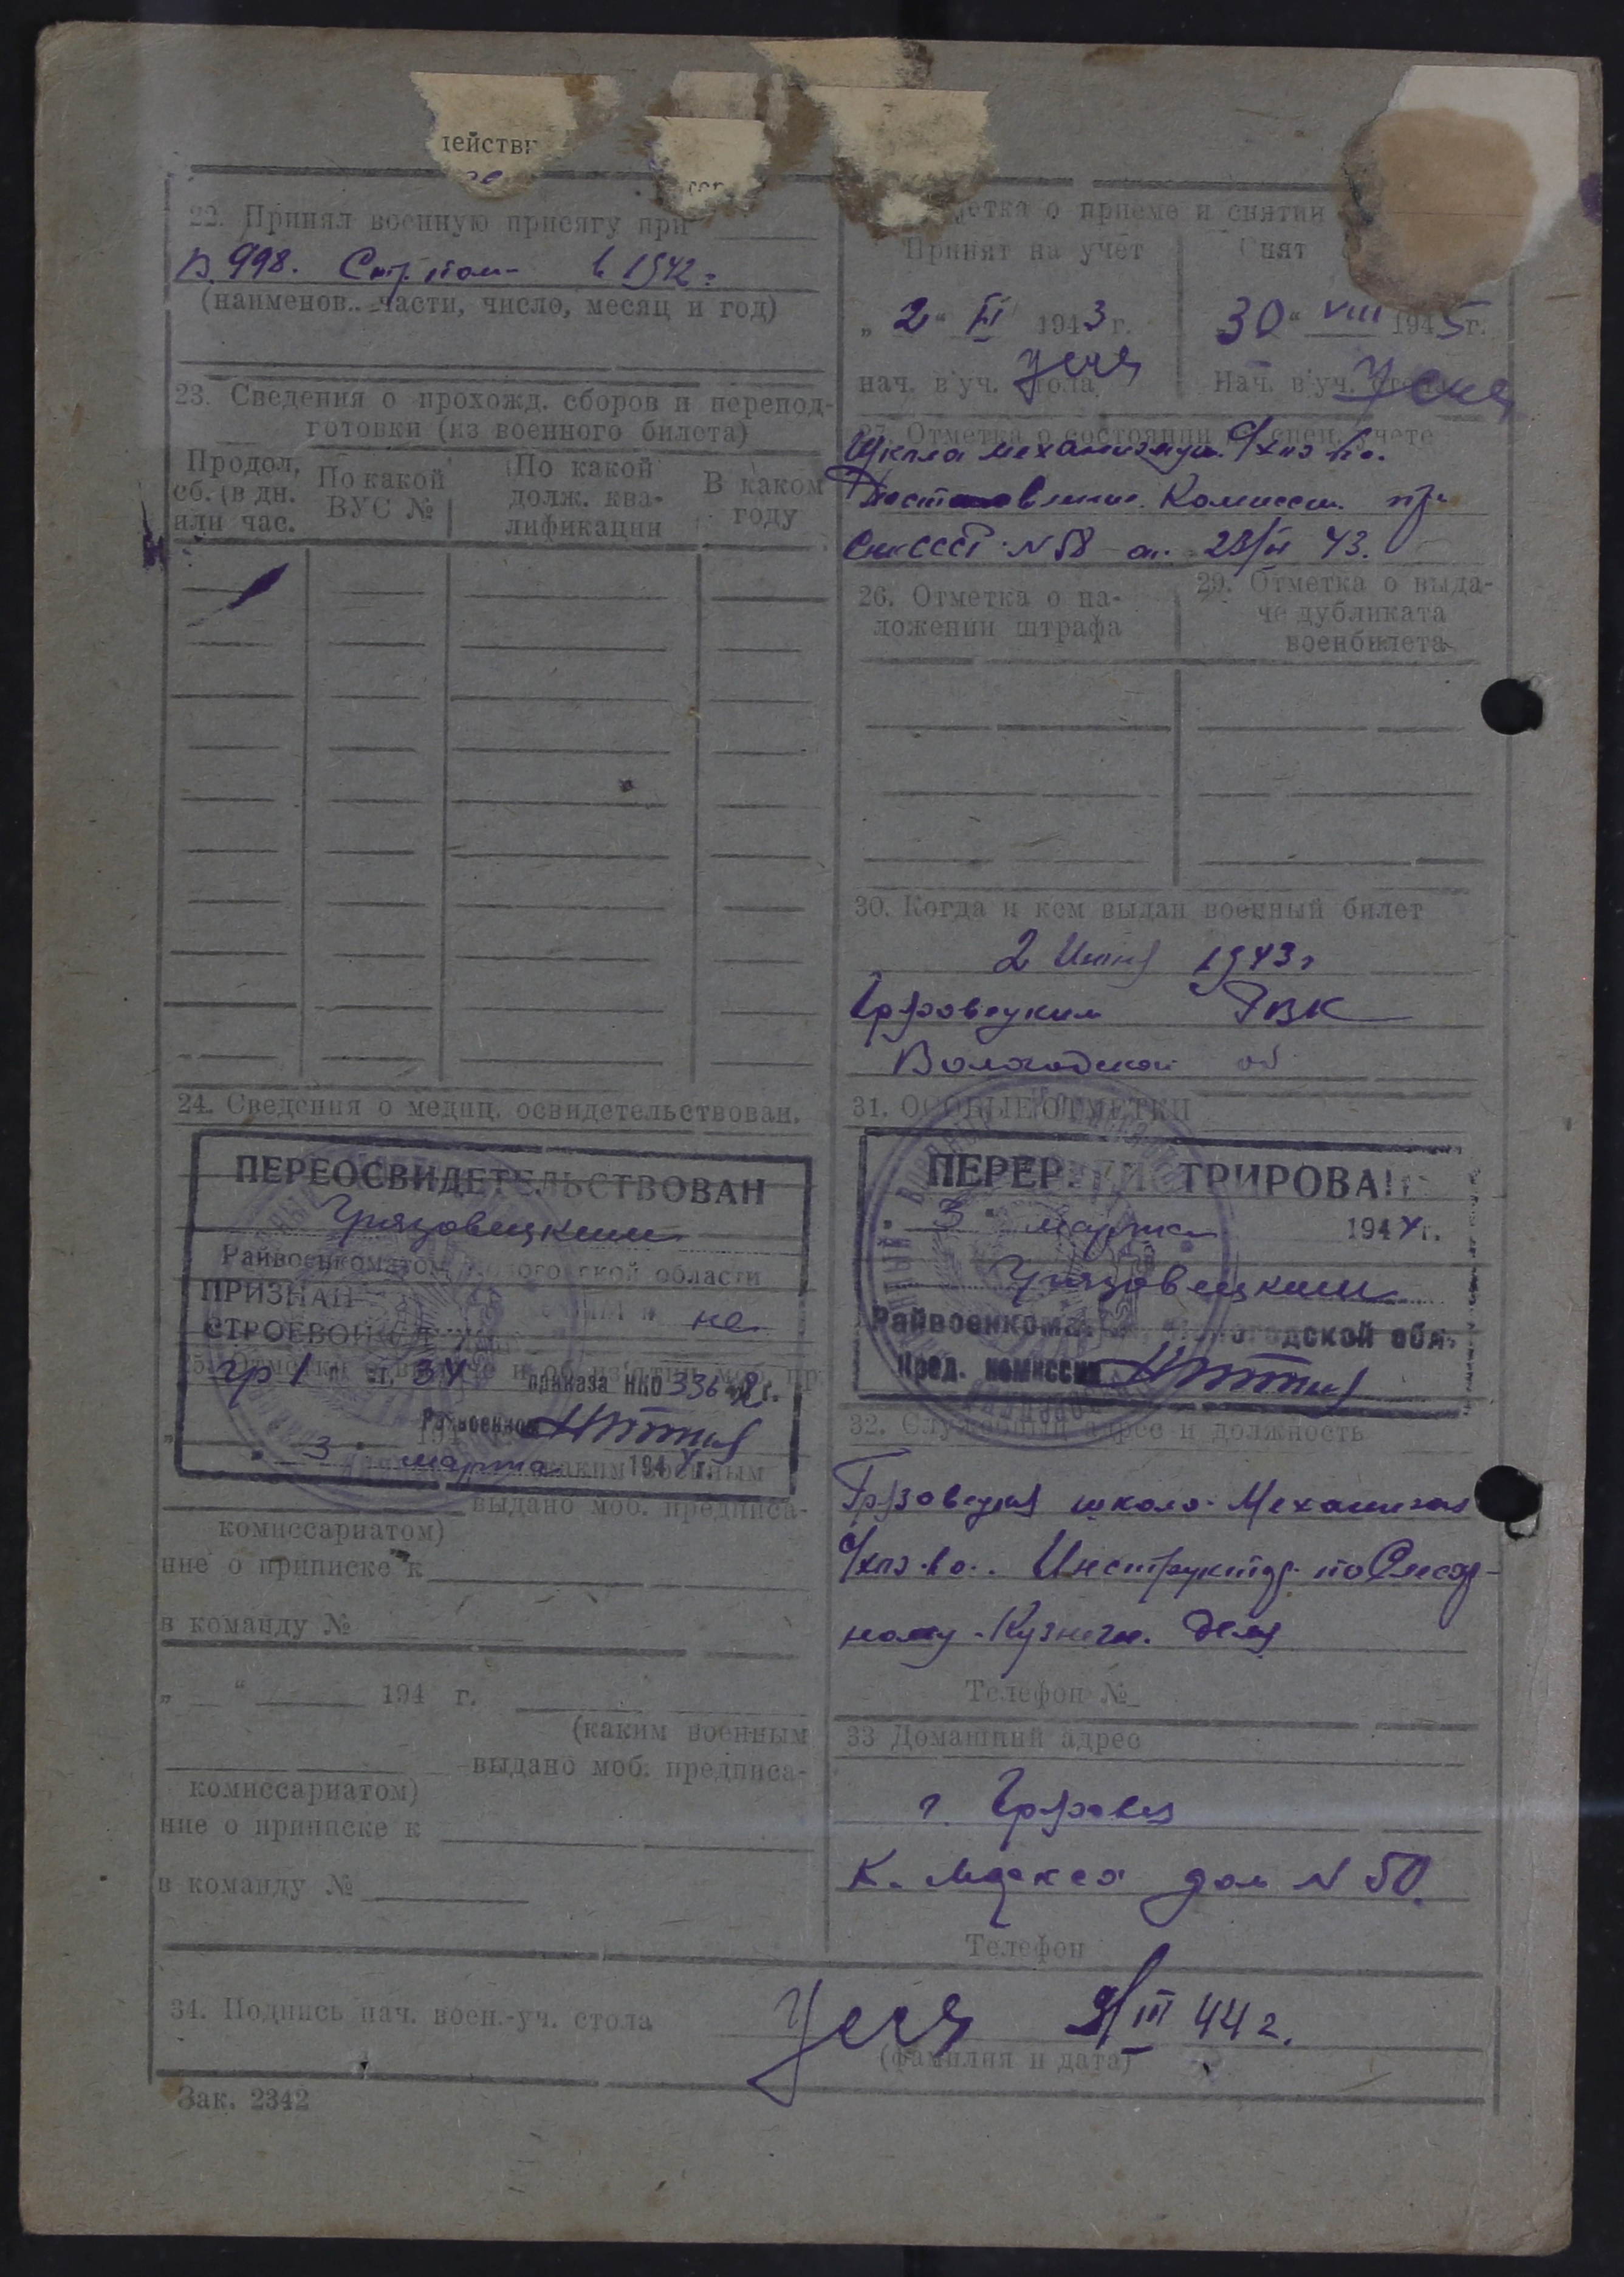 действи
22. Принял военную присягу при
в 998. Стр. пол- в 1942 г.
(наименов. части, число, месяц и год)
23. Сведения о прохожд. сборов и перепод-
готовки (из военного билета)
Продол. сб. (в дн. или час.
По какой ВУС №
По какой долж. ква-лификации
В каком году
24. Сведения о медиц. освидетельствован.
ПЕРЕОСВИДЕТЕЛЬСТВОВАН
Грязовецким
Райвоенкоматом Вологодской области
ПРИЗНАН
не
СТРОЕВОЙ
гр 1 ст. 34 приказа НКО 336 42 г.
Райвоенком
„ 3 " марта 1944 г.
каким военным
выдано моб. предписа-
комиссариатом)
ние о приписке к
в команду №
„ " 194 г.
(каким военным
выдано моб. предписа-
комиссариатом)
ние о приписке к
в команду №
отметка о приеме и снятии
Принят на учет
Снят
„ 2 " VI 1943 г.
30 " VIII 1945 г.
нач. в/уч. стола
Нач. в/уч. стола
27. Отметка о состоянии на спец. учете
Школа механизации с/хоз-ва.
Постановление Комиссии пр.
СНК СССР № 58 от 23/VI 43.
26. Отметка о на-
ложении штрафа
29. Отметка о выда-
че дубликата
военбилета
30. Когда и кем выдан военный билет
2 Июня 1943 г
Грязовецким РВК
Вологодской об
31. ОСОБЫЕ ОТМЕТКИ
ПЕРЕРЕГИСТРИРОВАН
„ 3 " марта 1944 г.
Грязовецким
Райвоенкоматом, Вологодской обл.
Пред. комиссии
32. Служебный адрес и должность
Грязовецкая школа Механизац
с/хоз-ва. Инструктор по Слесар-
ному-Кузнечн. делу
Телефон №
33 Домашний адрес
г. Грязовец
К. Маркса дом № 50.
Телефон
34. Подпись нач. воен.-уч. стола
9/III 44 г.
(фамилия и дата)
Зак. 2342